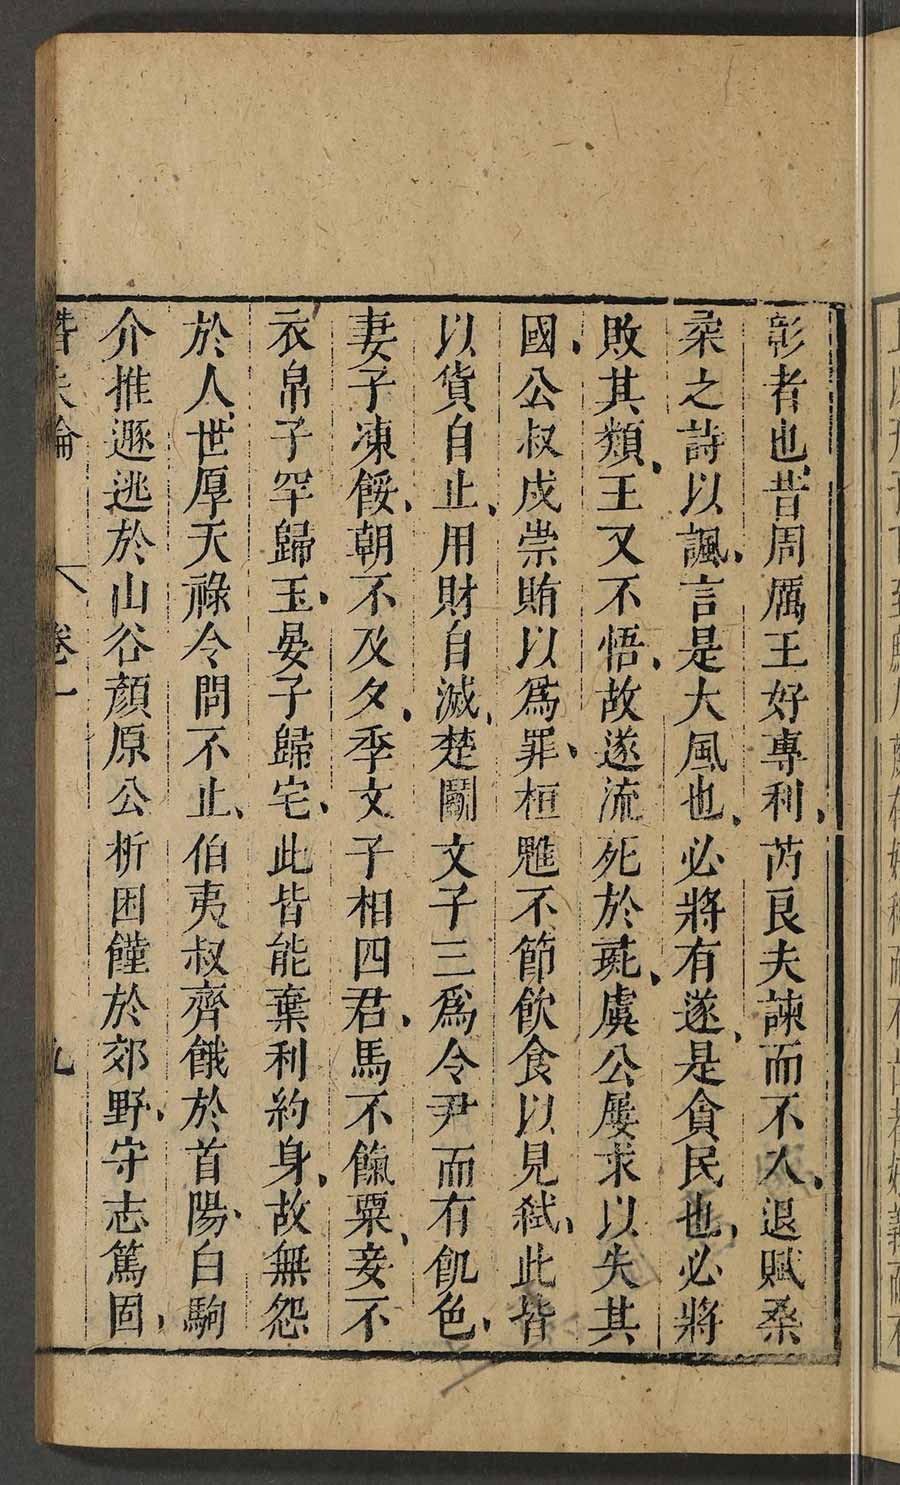 彰者也、昔周厲王好專利、芮良夫諫而不入、退賦桑
柔之詩以諷、言是大風也、必將有遂、是貪民也、必將
敗其類、王又不悟、故遂流死於彘、虞公屢求以失其
國、公叔戍崇賄以爲罪、桓魋不節飲食以見弑、此皆
以貨自止、用財自滅、楚鬭文子三爲令尹而有飢色、
妻子凍餒、朝不及夕、季文子相四君、馬不餼粟、妾不
衣帛子罕歸玉、晏子歸宅、此皆能棄利約身、故無怨
於人、世厚天祿令問不止、伯夷叔齊餓於首陽、白駒
介推遯逃於山谷顏原公析困饉於郊野、守志篤固、
論 卷一 九